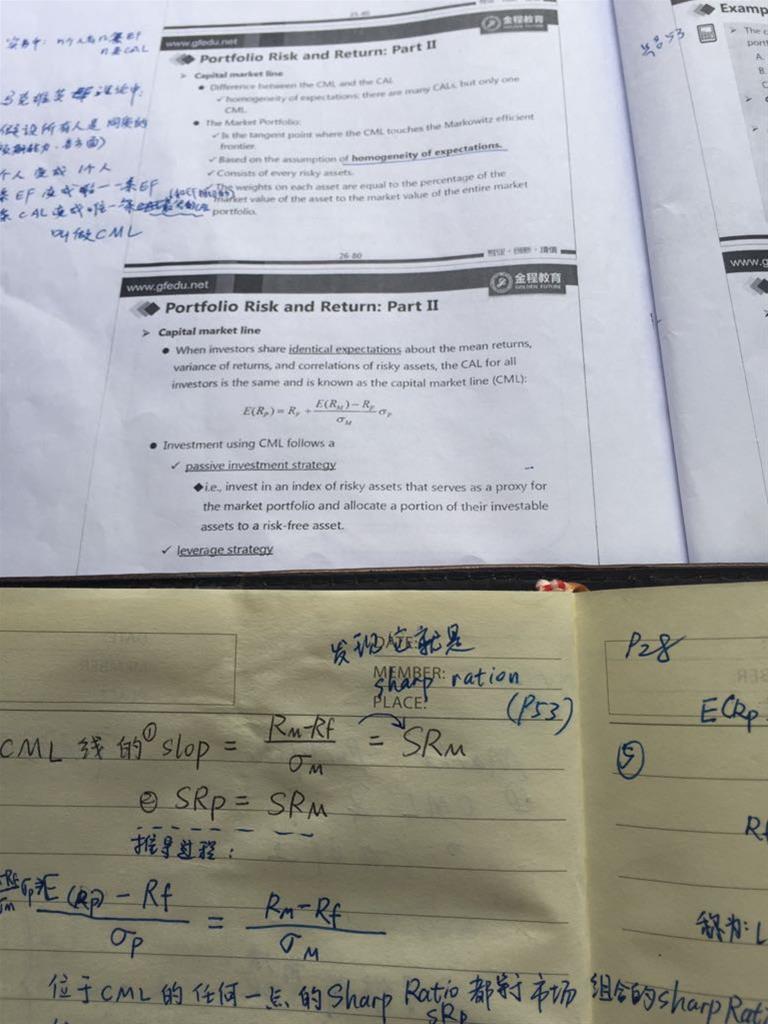 金程教育
www.gfedu.net
Portfolio Risk and Return: Part II
Capital market line
Difference between the CML and the CAL
✓ homogeneity of expectations: there are many CALs, but only one
CML.
The Market Portfolio:
✓ Is the tangent point where the CML touches the Markowitz efficient
frontier.
✓ Based on the assumption of homogeneity of expectations.
✓ Consists of every risky assets.
The weights on each asset are equal to the percentage of the
market value of the asset to the market value of the entire market
portfolio.
叫做CML
26-80
金程教育
GOLDEN FUTURE
www.gfedu.net
Portfolio Risk and Return: Part II
➢ Capital market line
● When investors share identical expectations about the mean returns,
variance of returns, and correlations of risky assets, the CAL for all
investors is the same and is known as the capital market line (CML):
E(R_P) = R_F + (E(R_M) − R_F)/σ_M σ_P
● Investment using CML follows a
✓ passive investment strategy
◆i.e., invest in an index of risky assets that serves as a proxy for
the market portfolio and allocate a portion of their investable
assets to a risk-free asset.
✓ leverage strategy
Examp
The c
port
A.
B.
C
www.g
发现这就是
DATE:
MEMBER:
sharp ration
PLACE:
(P53)
CML 线的①slop = (RM-Rf)/σM = SRM
② SRp = SRM
推导过程:
(E(Rp) - Rf)/σp = (RM-Rf)/σM
位于CML的任何一点的Sharp Ratio都等于市场组合的sharp Rati
SRp
P28
E(Rp
⑤
Rf
称为: L